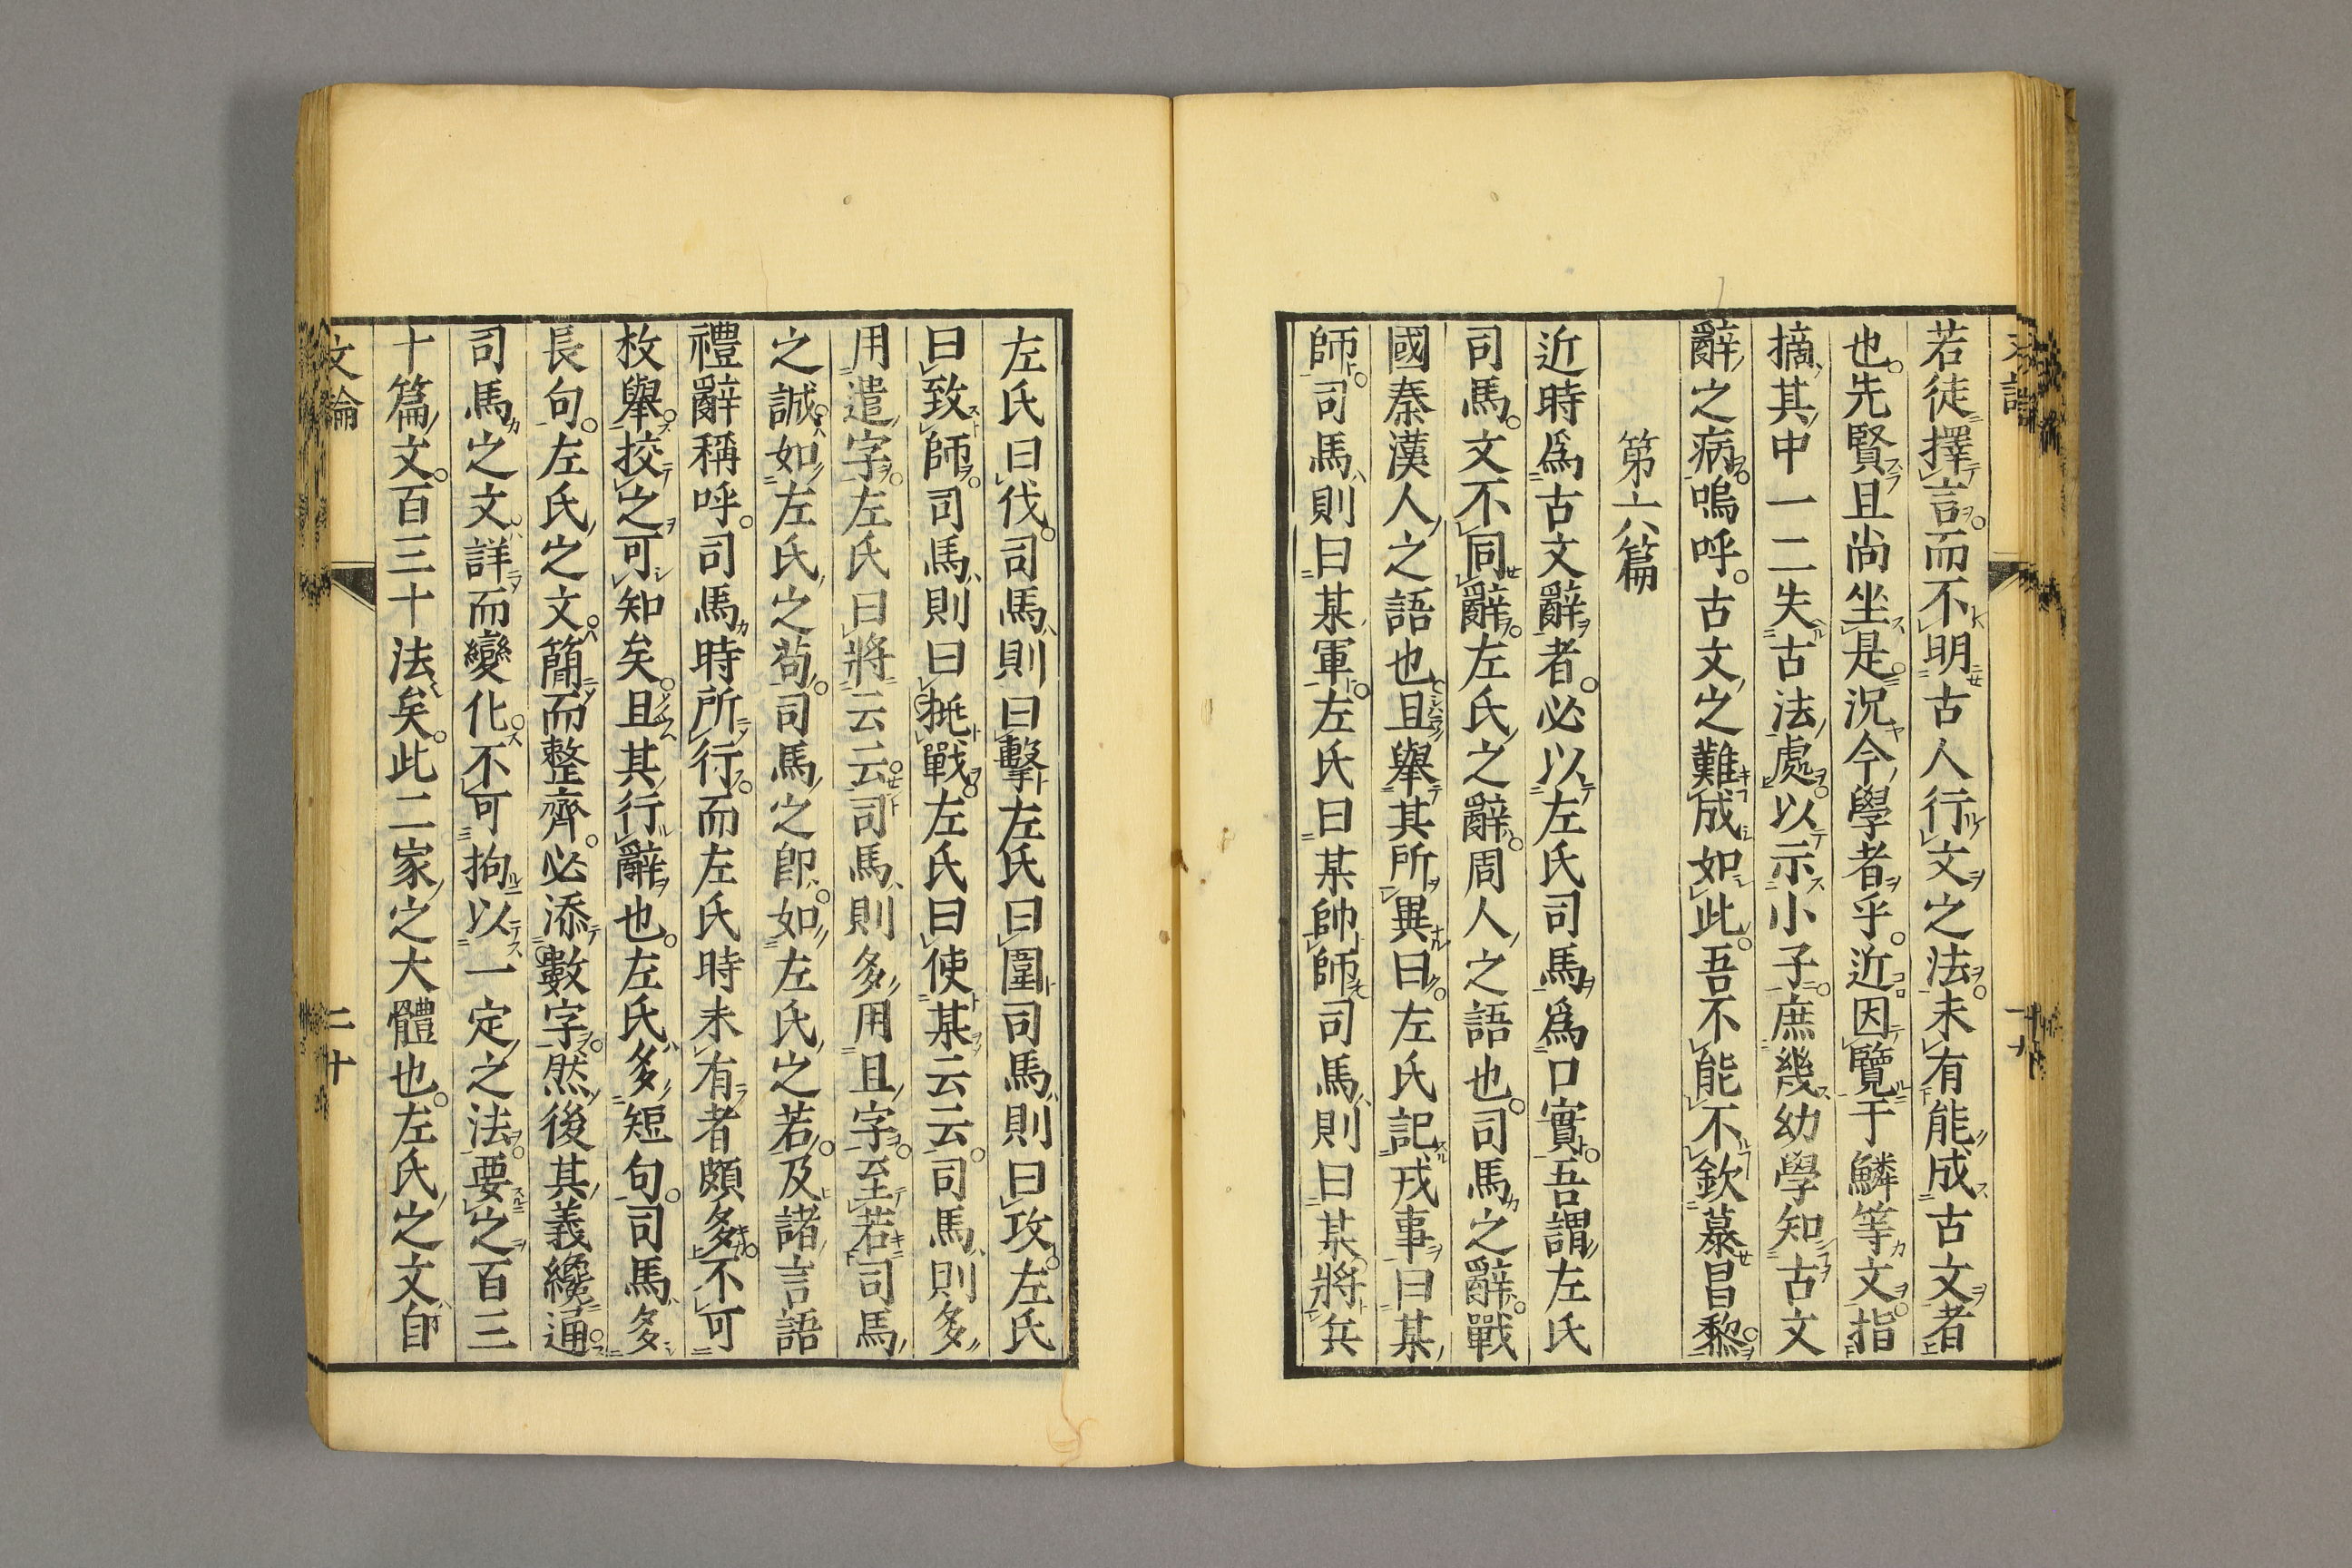 若徒擇言。而不明古人行文之法。未有能成古文者
也。先賢且尚坐是。況今學者乎。近因覽于鱗等文。指
摘其中一二失古法處。以示小子。庶幾幼學知古文
辭之病。嗚呼。古文之難成如此。吾不能不欽慕昌黎。
第六篇
近時爲古文辭者。必以左氏司馬爲口實。吾謂左氏
司馬。文不同辭。左氏之辭。周人之語也。司馬之辭。戰
國秦漢人之語也。且舉其所異曰。左氏記戎事曰某
師。司馬則曰某軍。左氏曰某帥師。司馬則曰某將兵
左氏曰伐。司馬則曰擊。左氏曰圍。司馬則曰攻。左氏
曰致師。司馬則曰挑戰。左氏曰使某云云。司馬則多
用遣字。左氏曰將云云。司馬則多用且字。至若司馬
之誠。如左氏之苟。司馬之卽。如左氏之若。及諸言語
禮辭稱呼。司馬時所行。而左氏時未有者頗多。不可
枚舉。挍之可知矣。且其行辭也。左氏多短句。司馬多
長句。左氏之文。簡而整齊。必添數字。然後其義纔通。
司馬之文。詳而變化。不可拘以一定之法。要之百三
十篇文。百三十法矣。此二家之大體也。左氏之文自
文論
二十